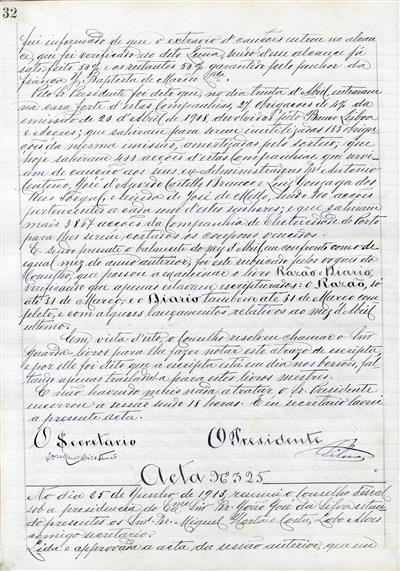 32
fui informado de que o extravio d'cauções entrou no alcan
ce, que foi verificado ao dito Lima, sendo d'esse alcance já
satisfeito 50% e os restantes 50% garantido pelo penhor da
fiança J. Baptista de Macedo
Pelo Sr Presidente foi dito que, no dia trinta d'Abril, entraram
na casa forte d'estas Companhias, 27 Obrigações de 4% da
emissão de 20 d'Abril de devolvidas pelo Banco Lisboa
e Açores; que sahiram para serem inutilizadas 133 obriga
ções da mesma emissão, amortizadas pelo sorteio; que
hoje sahiram 400 acções d'estas Companhias que servi
am de caução aos seus ex-Administradores Srs Antonio
Centeno, José d'Azevedo Castello Branco e Luiz Gonzaga dos
Reis Torgal, e viuva de José de Mello, sendo 100 acções
pertencentes a cada um d'estes senhores; e que sahiram
mais 3867 acções da Companhia de Electricidade do Porto
para lhes serem cortados os coupons vencidos.
E sendo presente o balancete do mez d'Abril, em confronto com o de
egual mez do anno anterior, foi este rubricado pelos vogaes do
Conselho, que passou a examinar o livro Razão e Diario,
verificando que apenas estavam escripturados: o Razão,
até 31 de Março; e o Diario tambem até 31 de Março com
pleto, e com alguns lançamentos relativos ao mez d'Abril
ultimo.
Em vista d'isto, o Conselho resolveu chamar o Snr
guarda livros para lhe fazer notar este atrazo de escripta,
e por elle foi dito que a escripta está em dia nos borrões, fal
tando apenas trasladal-a para estes livros mestres.
E não havendo mais nada a tratar, o Sr Presidente
encerrou a sessão sendo 18 horas. E eu secretario lavrei
a presente acta.
O Secretario O Presidente
Silva
Acta Nº 325
No dia 25 de Junho de 1913, reuniu o Conselho Fiscal
sob a presidencia do Exmo Snr Dr João José da Silva estan
do presentes os Snrs Dr Miguel Horta e Costa, Lobo Alves
comigo secretario.
Lida e approvada a acta da sessão anterior, que eu